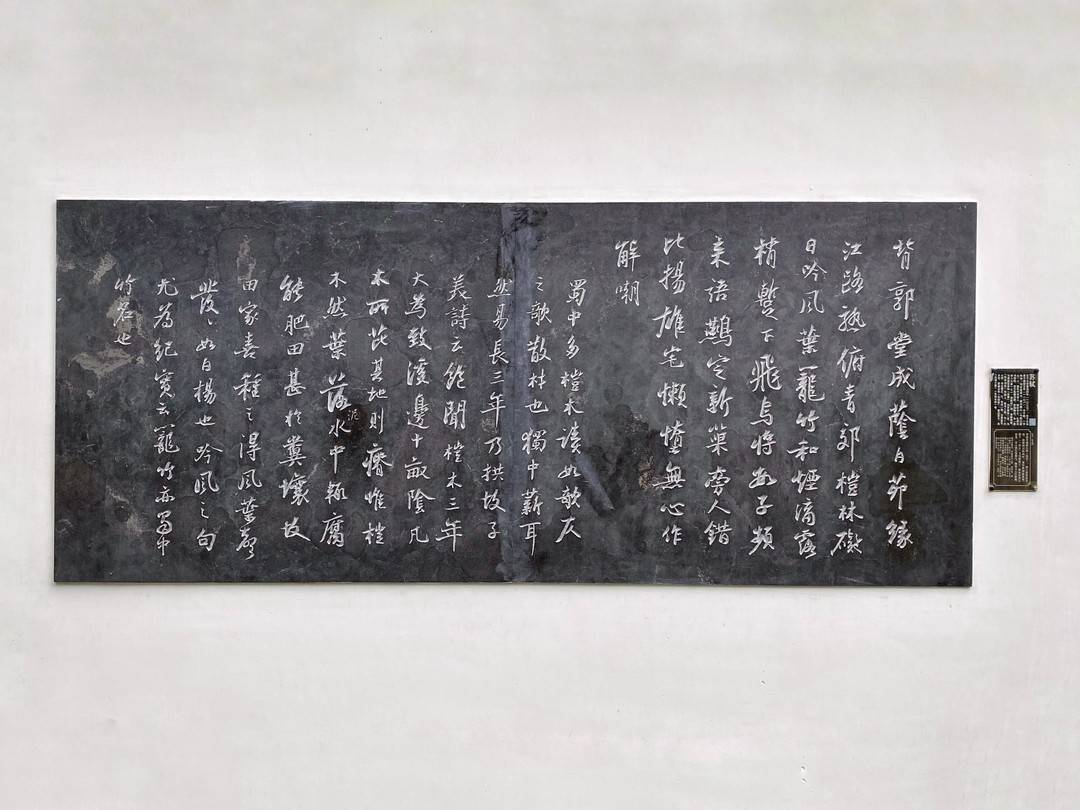 背郭堂成蔭白茆緣
江路熟俯青郊榿林礙
日吟風葉籠竹和煙滴露
梢暫下飛烏將數子頻
來語鷰定新巢旁人錯
比揚雄宅懶惰無心作
解嘲
蜀中多榿木讀如欹仄
之欹散材也獨中薪耳
然易長三年乃拱故子
美詩云飽聞榿木三年
大為致溪邊十畝陰凡
木所芘其地則瘠惟榿
木然葉落泥水中輒腐
能肥田甚於糞壤故
田家喜種之得風葉聲
發發如白楊也吟風之句
尤為紀實云籠竹亦蜀中
竹名也